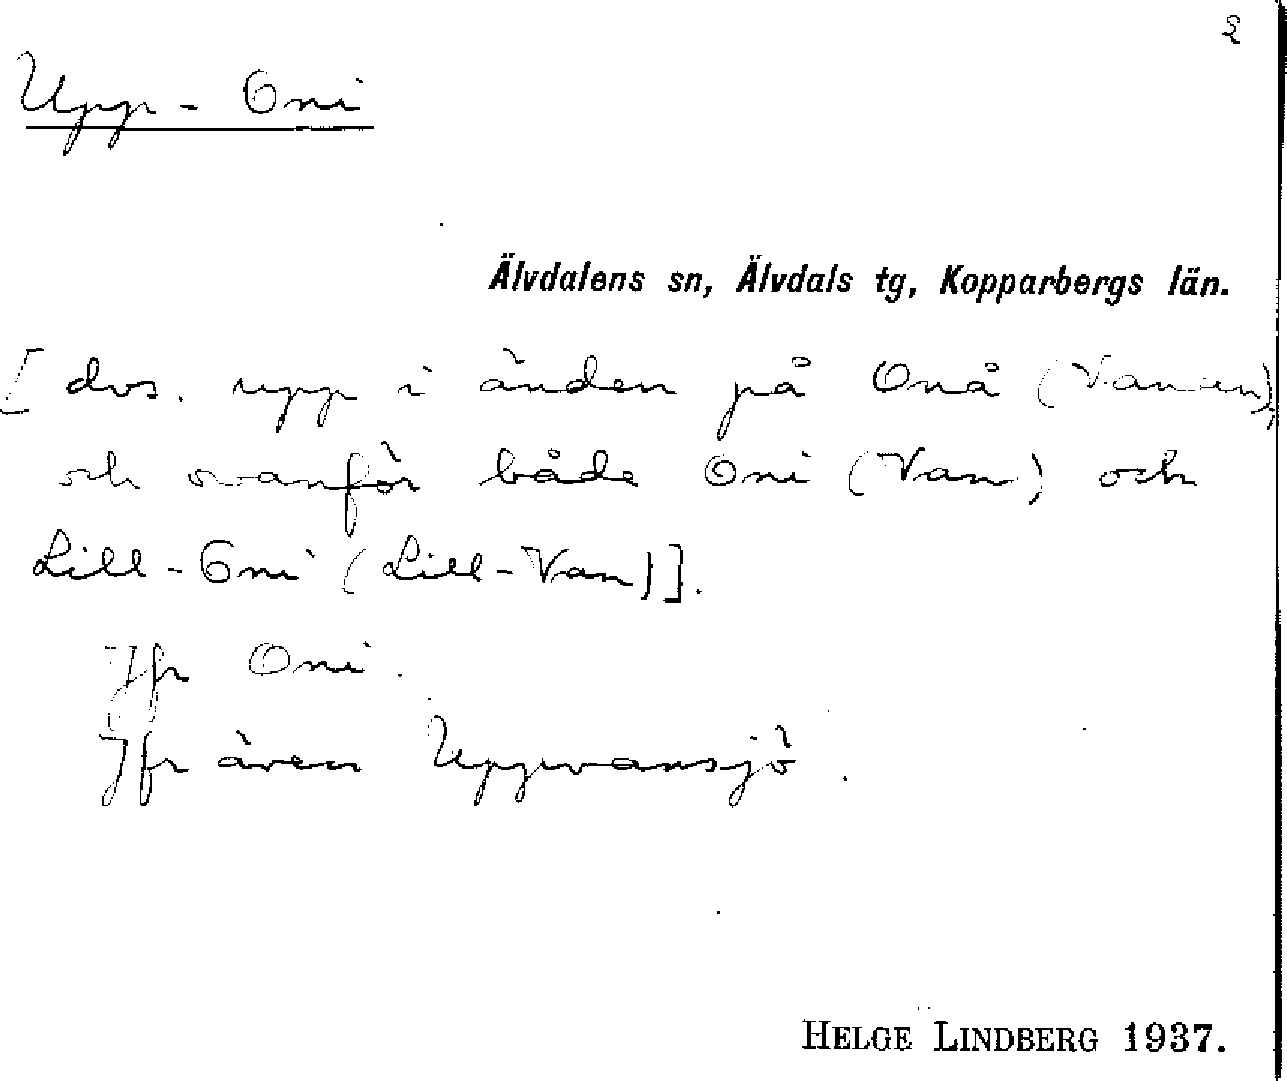 2
Upp-Oni
Älvdalens sn, Älvdals tg, Kopparbergs län.
[dvs. upp i änden på Onå (Vanån),
och ovanför både Oni (Van) och
Lill-Oni (Lill-Van)].
Jfr Oni.
Jfr även Uppvansjö.
HELGE LINDBERG 1937.